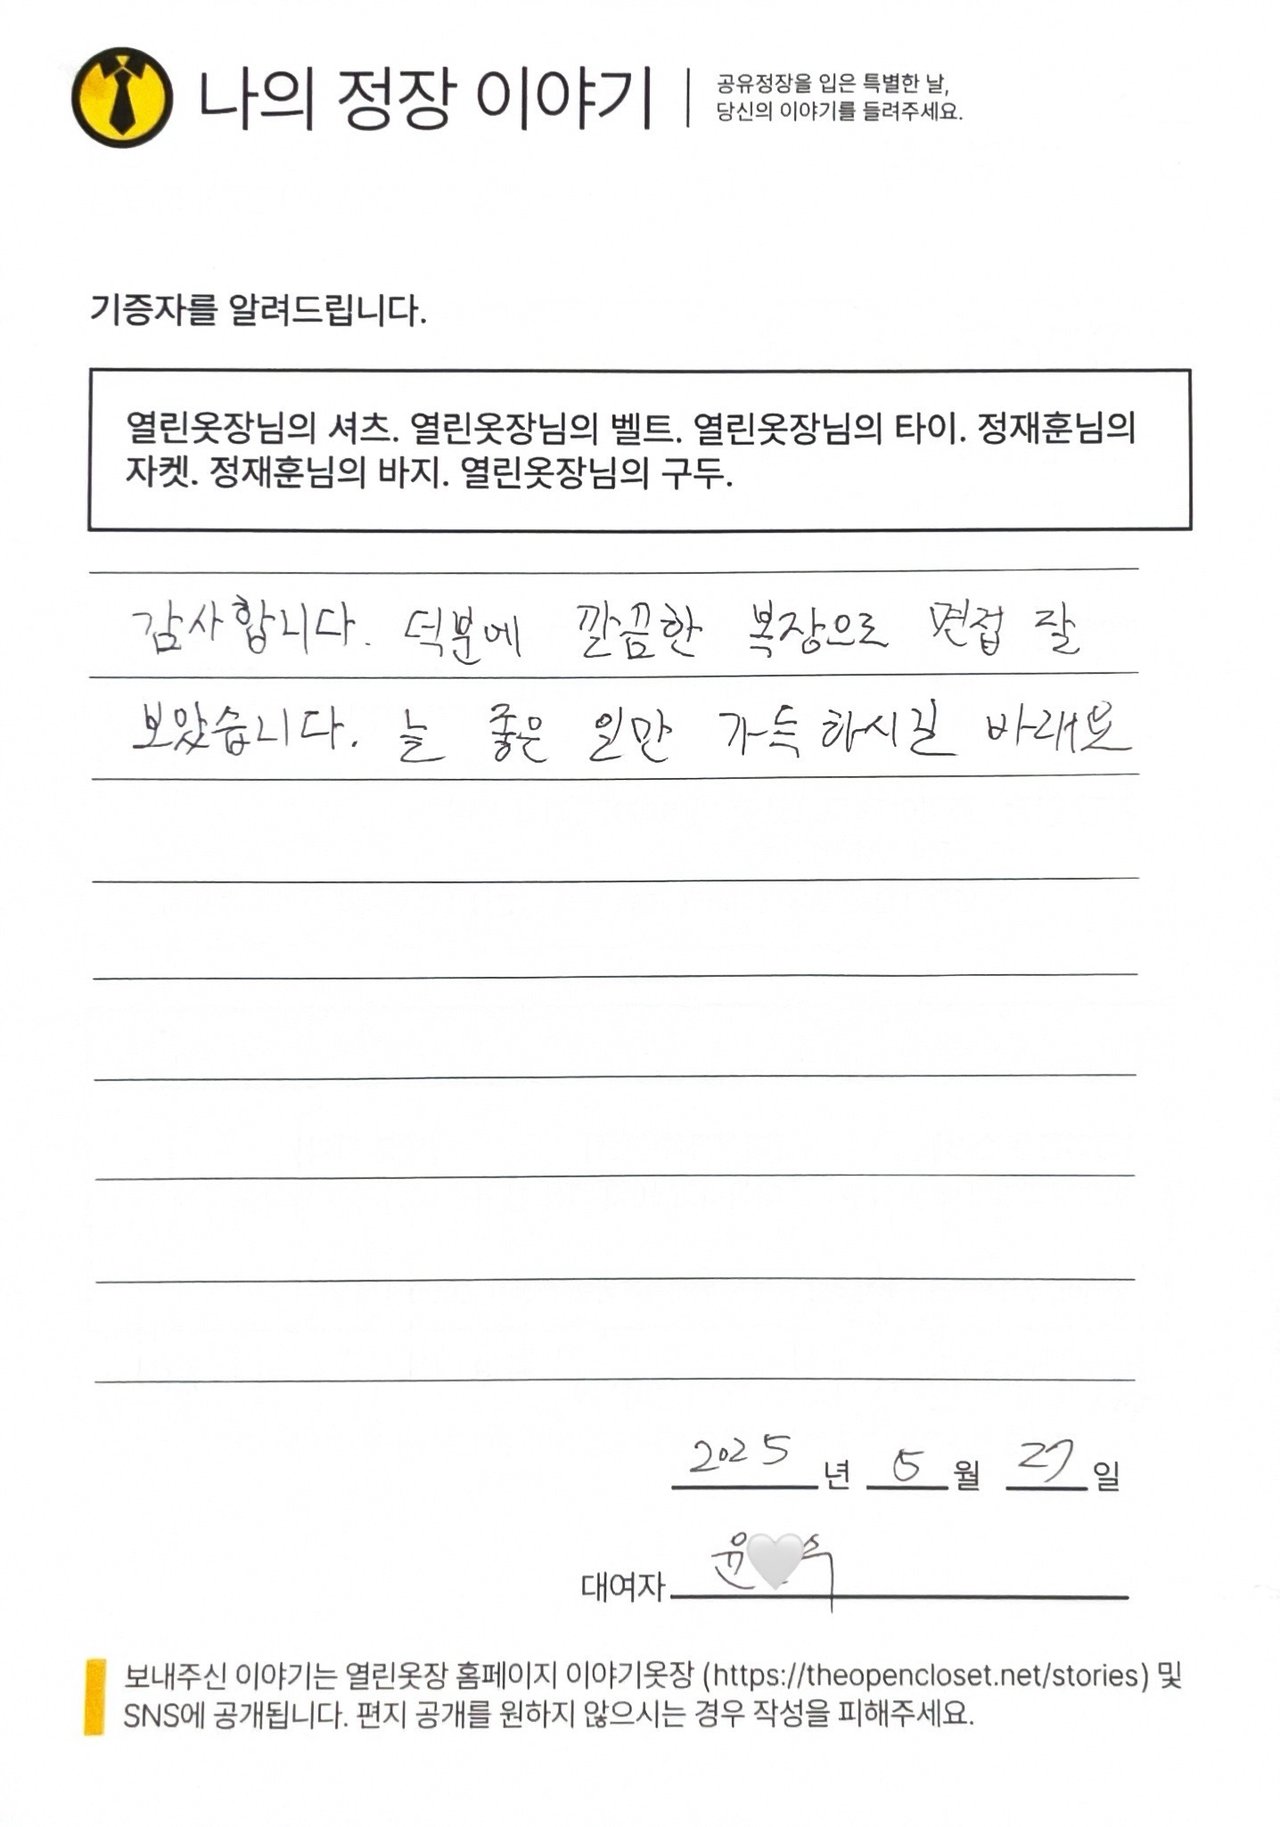 나의 정장 이야기
공유정장을 입은 특별한 날,
당신의 이야기를 들려주세요.
기증자를 알려드립니다.
열린옷장님의 셔츠. 열린옷장님의 벨트. 열린옷장님의 타이. 정재훈님의
자켓. 정재훈님의 바지. 열린옷장님의 구두.
감사합니다. 덕분에 깔끔한 복장으로 면접 잘
보았습니다. 늘 좋은 일만 가득하시길 바래요
2025 년 5 월 27 일
대여자 윤
보내주신 이야기는 열린옷장 홈페이지 이야기옷장 (https://theopencloset.net/stories) 및
SNS에 공개됩니다. 편지 공개를 원하지 않으시는 경우 작성을 피해주세요.